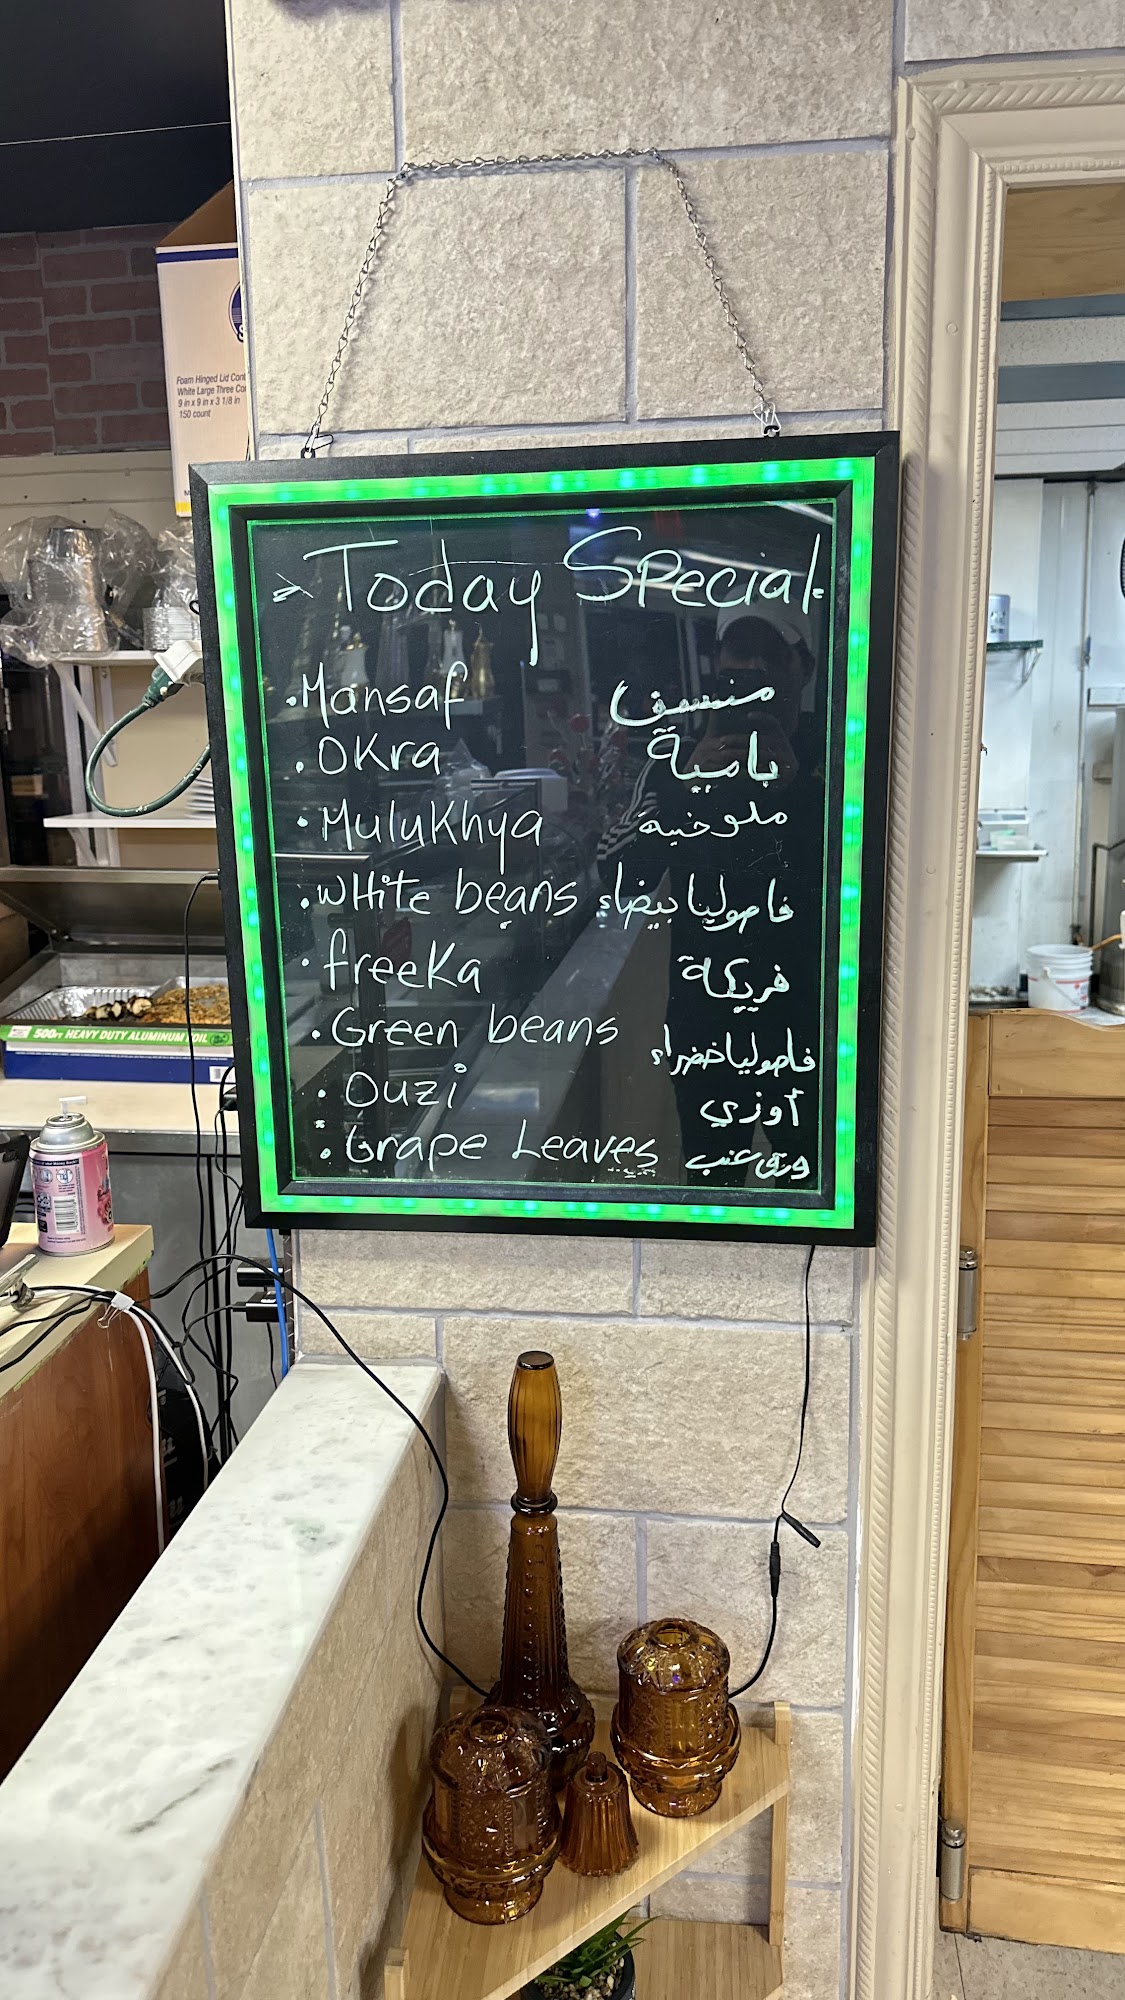 Foam Hinged Lid Cont
White Large Three Co
9 in x 9 in x 3 1/8 in
150 count
Today Special
Mansaf منسف
Okra بامية
Mulukhya ملوخية
White beans فاصوليا بيضاء
freeka فريكة
Green beans فاصوليا خضراء
Ouzi أوزي
Grape Leaves ورق عنب
500FT HEAVY DUTY ALUMINUM FOIL